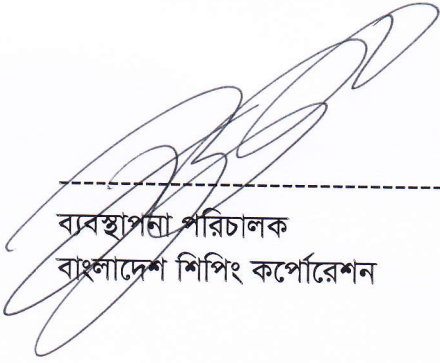 ব্যবস্থাপনা পরিচালক
বাংলাদেশ শিপিং কর্পোরেশন